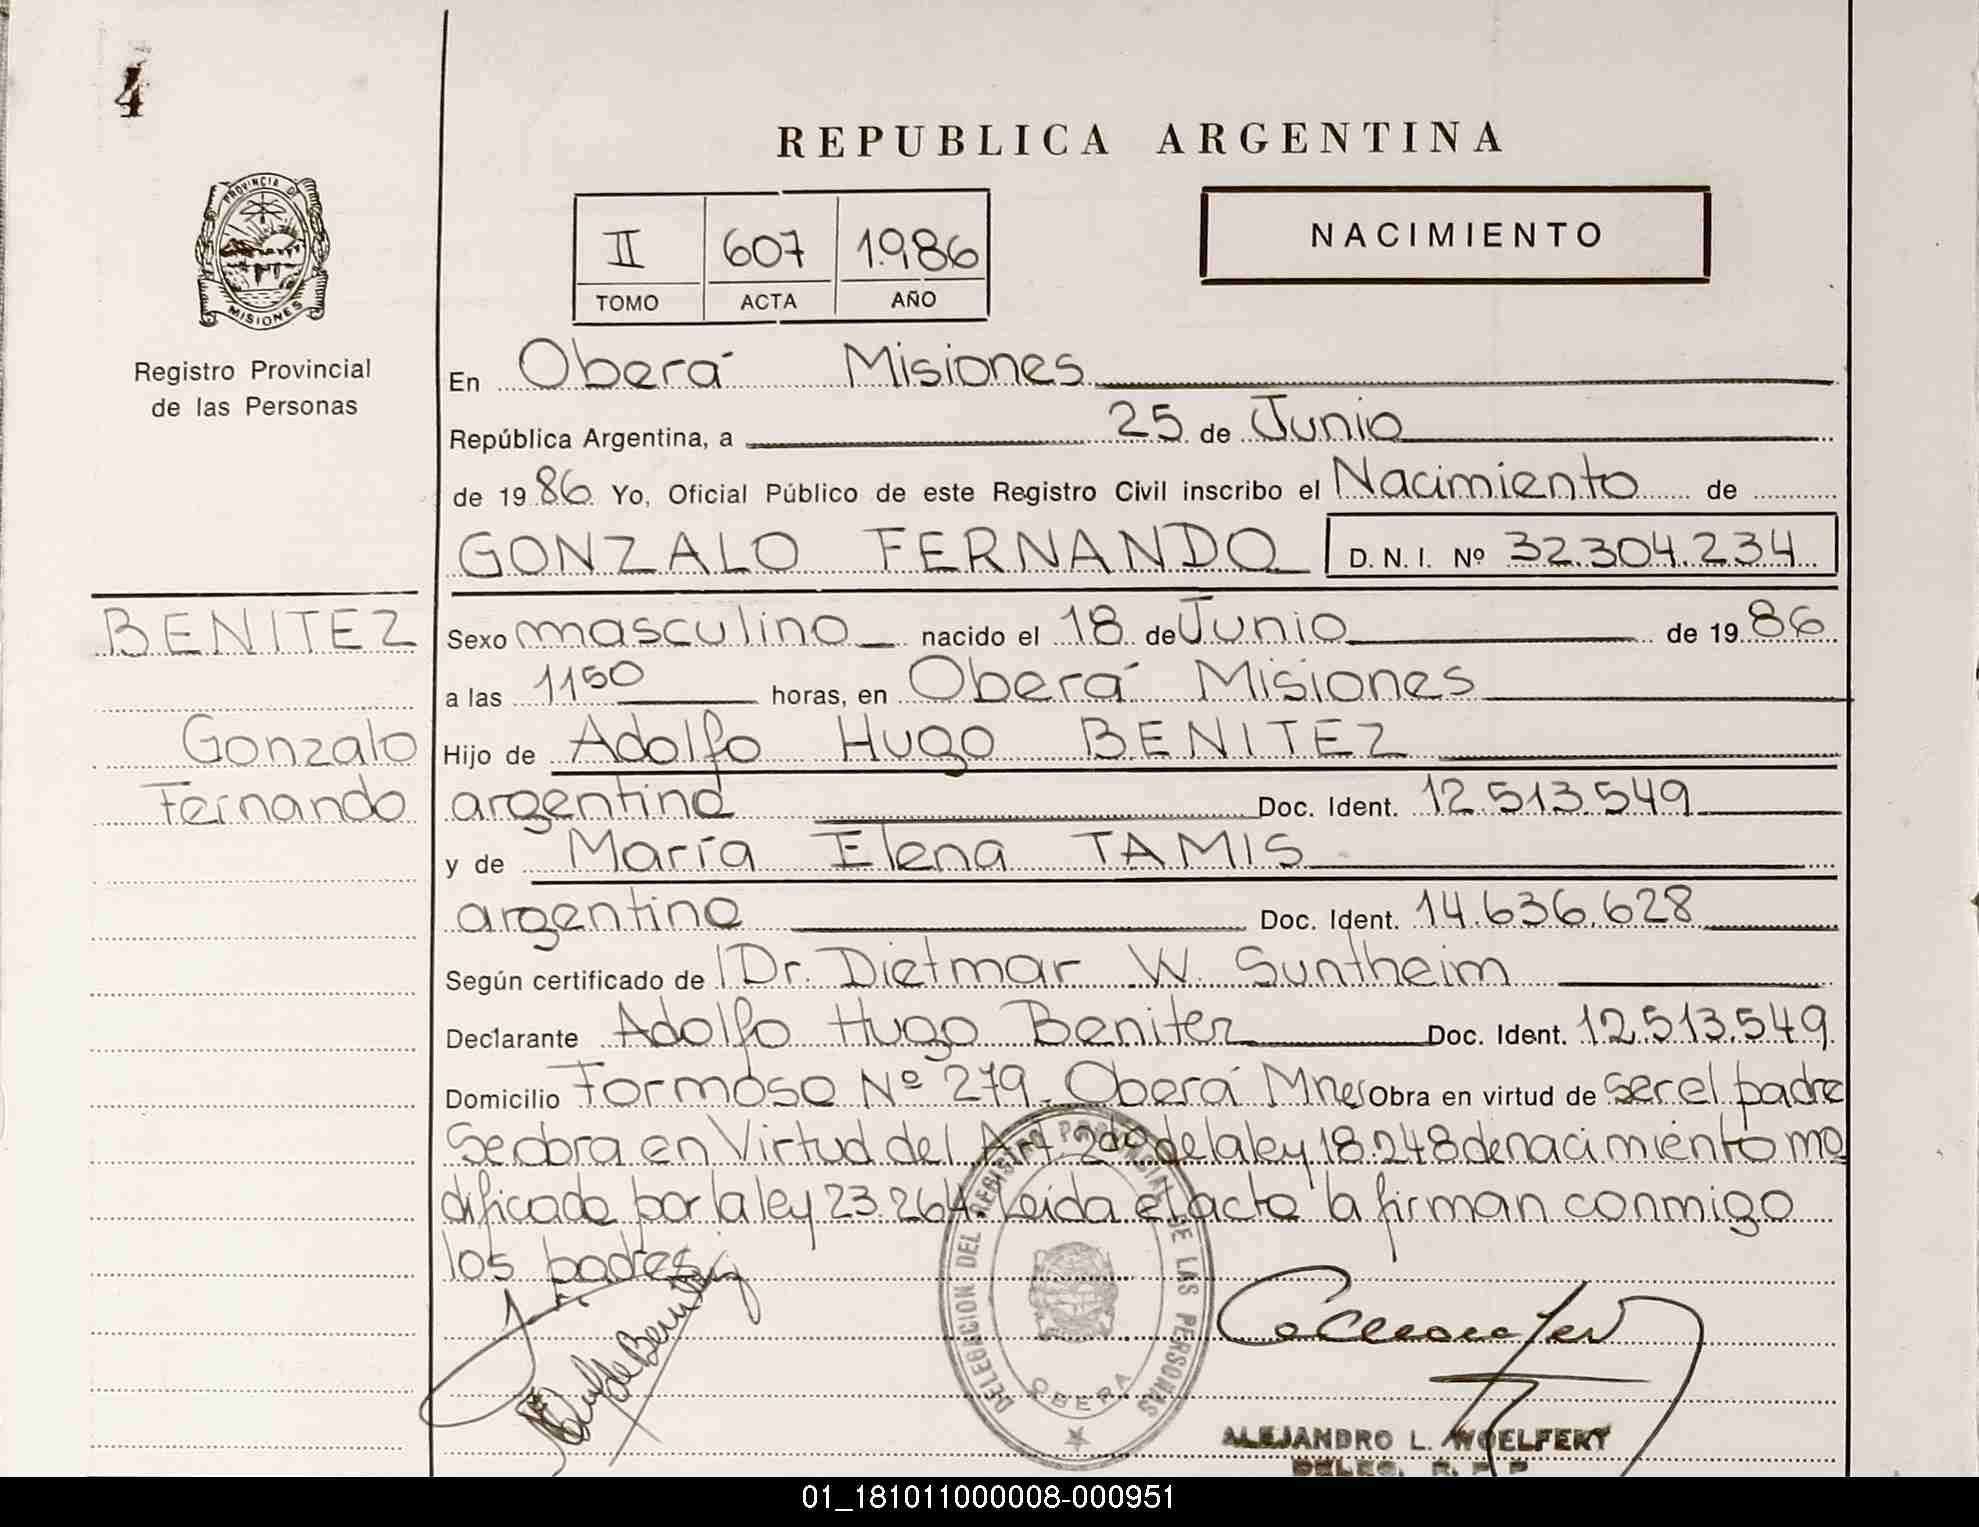 4
REPUBLICA ARGENTINA
PROVINCIA DE
MISIONES
II 607 1.986
TOMO ACTA AÑO
NACIMIENTO
Registro Provincial
de las Personas
En Oberá Misiones
República Argentina, a 25 de Junio
de 1986 Yo, Oficial Público de este Registro Civil inscribo el Nacimiento de
GONZALO FERNANDO D. N. I. Nº 32.304.234
BENITEZ
Gonzalo
Fernando
Sexo masculino nacido el 18 de Junio de 1986
a las 1150 horas, en Oberá Misiones
Hijo de Adolfo Hugo BENITEZ
argentina Doc. Ident. 12.513.549
y de María Elena TAMIS
argentina Doc. Ident. 14.636.628
Según certificado de Dr. Dietmar W. Suntheim
Declarante Adolfo Hugo Benitez Doc. Ident. 12.513.549
Domicilio Formosa Nº 279. Oberá Mnes Obra en virtud de ser el padre
Se obra en Virtud del Art. 2do de la ley 18.248 de nacimiento mo
dificada por la ley 23.264. Leida el acta la firman conmigo
los padres
DELEGACION DEL REGISTRO PROVINCIAL DE LAS PERSONAS
OBERA
ALEJANDRO L. WOELFERT
DELEG. R. P. P.
01_181011000008-000951